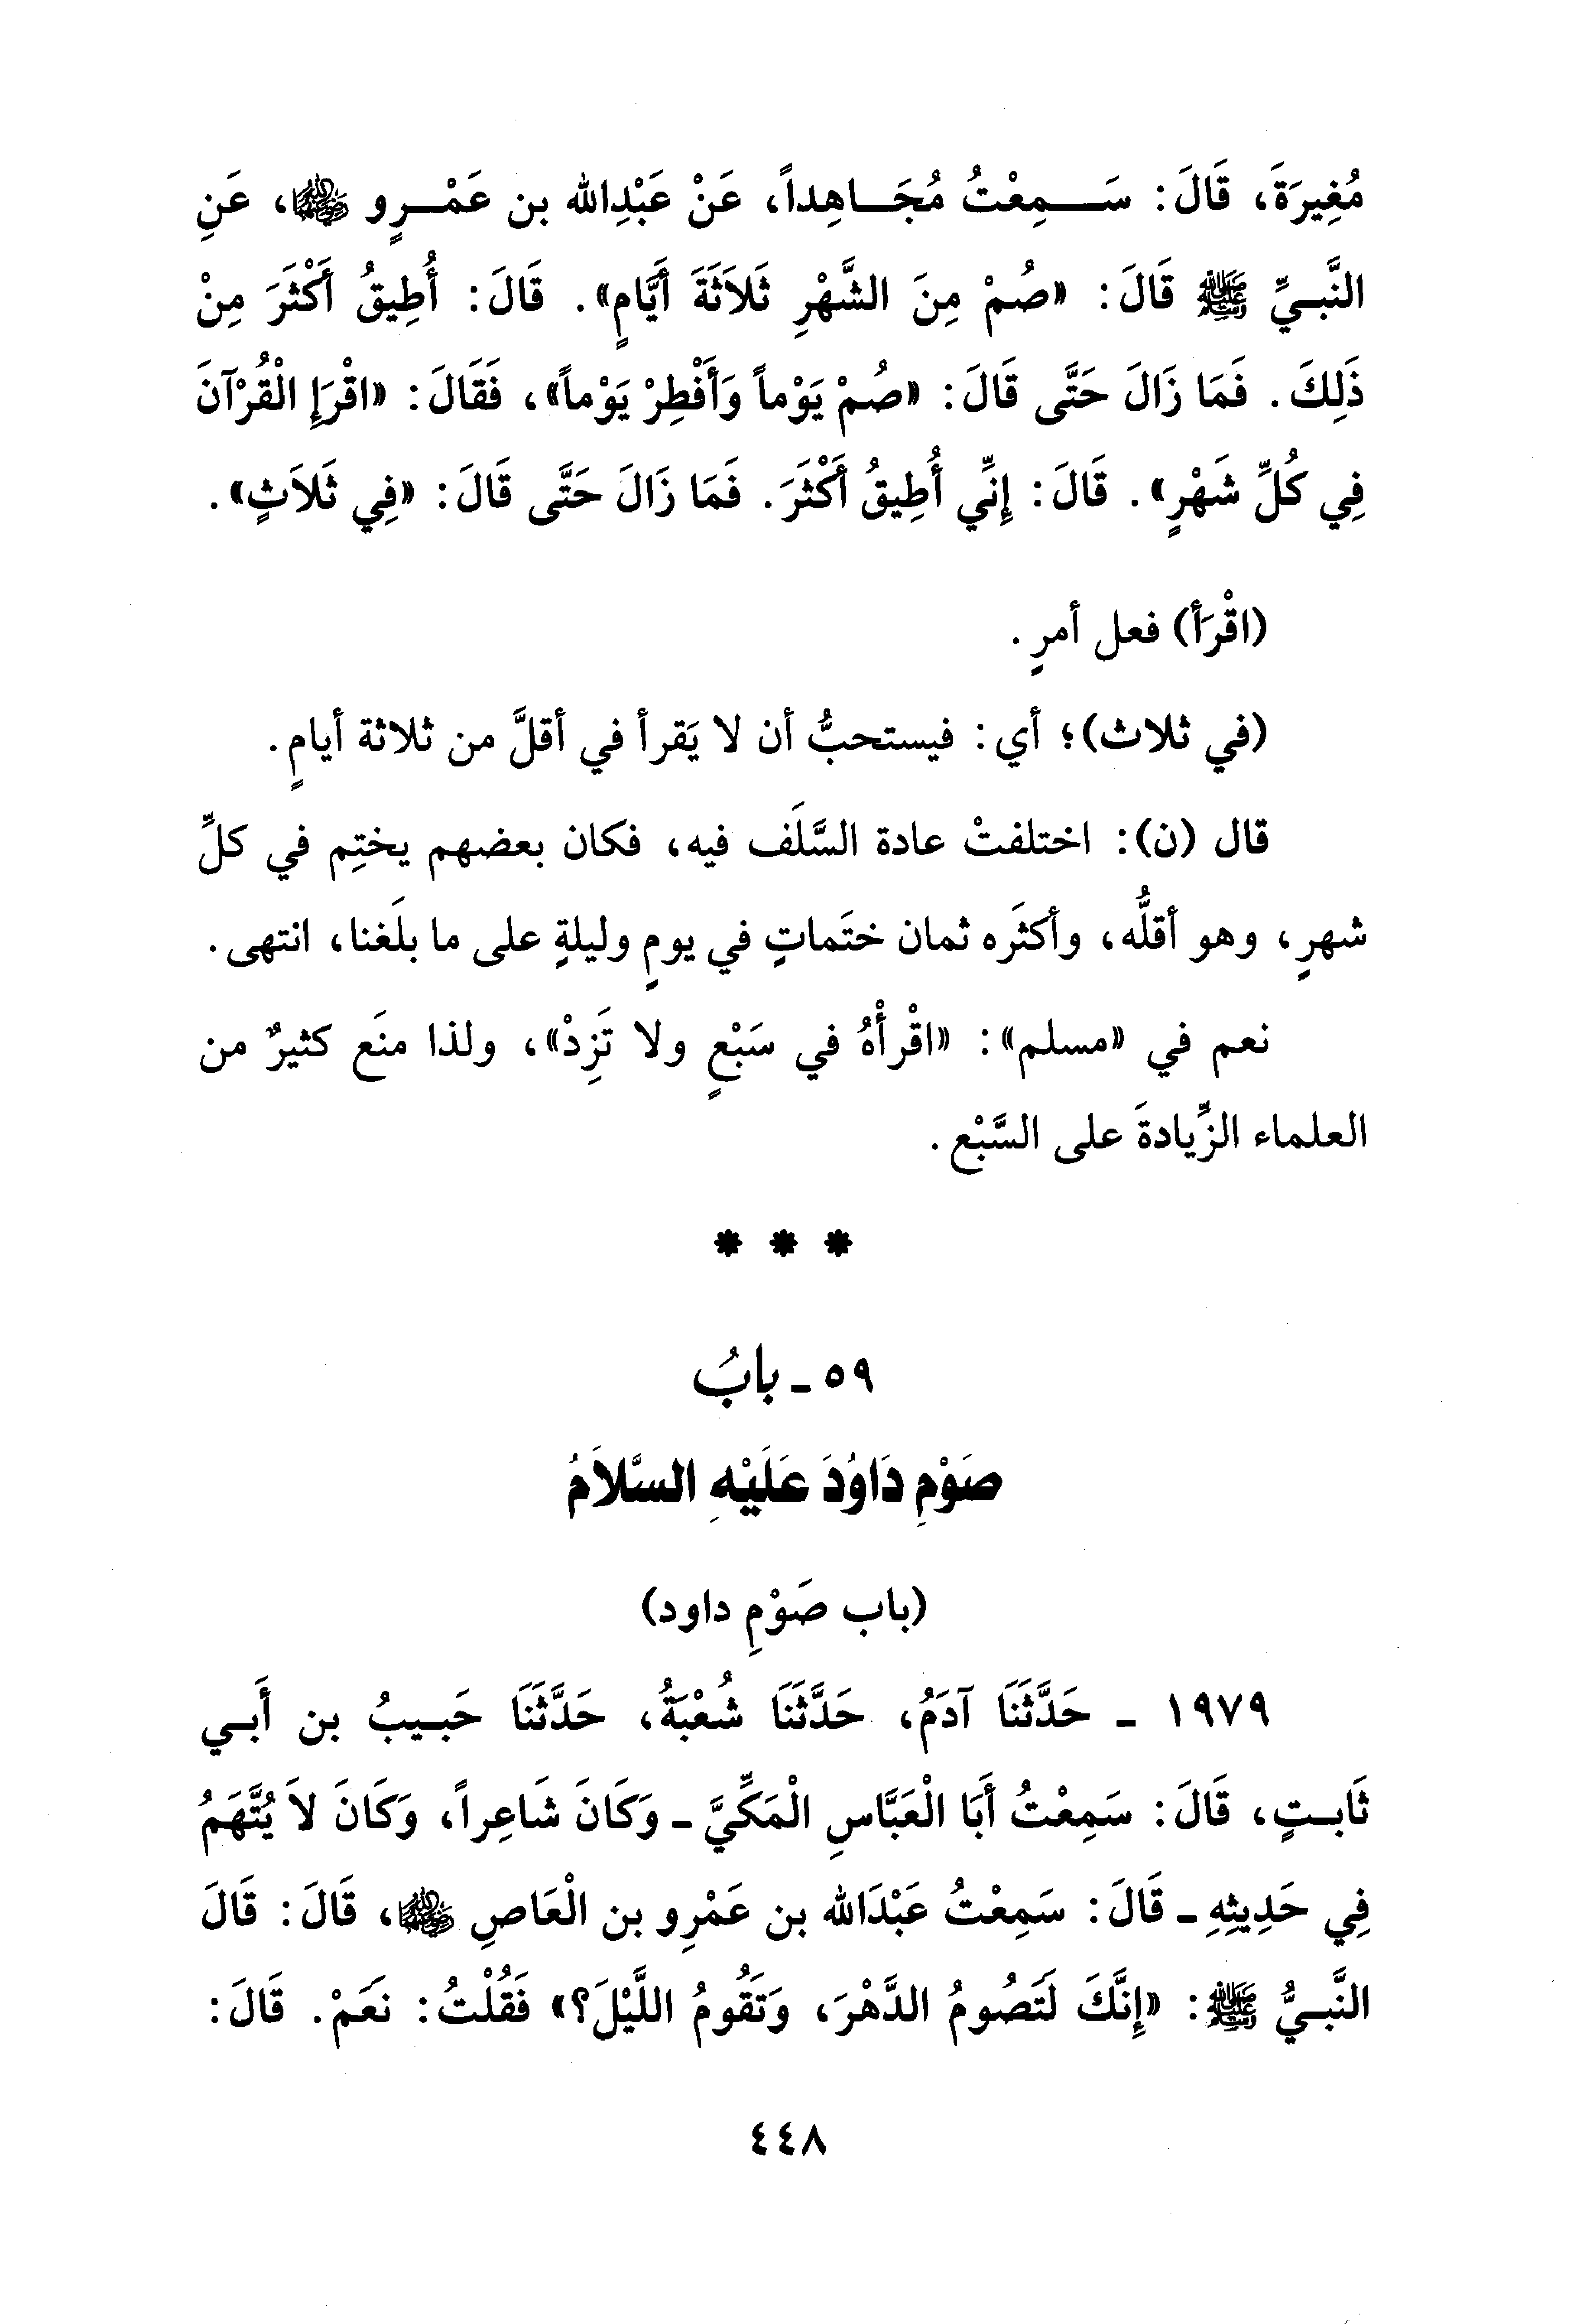 مُغِيرَةَ، قَالَ: سَمِعْتُ مُجَاهِداً، عَنْ عَبْدِالله بن عَمْرٍو ﵁، عَنِ
النَّبيِّ ﷺ قَالَ: «صُمْ مِنَ الشَّهْرِ ثَلاَثَةَ أَيَّامٍ». قَالَ: أُطِيقُ أَكْثَرَ مِنْ
ذَلِكَ. فَمَا زَالَ حَتَّى قَالَ: «صُمْ يَوْماً وَأَفْطِرْ يَوْماً»، فَقَالَ: «اقْرَإِ الْقُرْآنَ
فِي كُلِّ شَهْرٍ». قَالَ: إِنِّي أُطِيقُ أَكْثَرَ. فَمَا زَالَ حَتَّى قَالَ: «فِي ثَلاَثٍ».
(اقْرَأ) فعل أمرٍ.
(في ثلاث)؛ أي: فيستحبُّ أن لا يَقرأ في أقلَّ من ثلاثة أيامٍ.
قال (ن): اختلفتْ عادة السَّلَف فيه، فكان بعضهم يختِم في كلِّ
شهرٍ، وهو أقلُّه، وأكثَره ثمان ختَماتٍ في يومٍ وليلةٍ على ما بلَغنا، انتهى.
نعم في «مسلم»: «اقْرأْهُ في سَبْعٍ ولا تَزِدْ»، ولذا منَع كثيرٌ من
العلماء الزِّيادةَ على السَّبْع.
* * *
٥٩ - بابُ
صَوْمِ دَاوُدَ عَلَيْهِ السَّلاَمُ
(باب صَوْمِ داود)
١٩٧٩ - حَدَّثَنَا آدَمُ، حَدَّثَنَا شُعْبَةُ، حَدَّثَنَا حَبيبُ بن أَبي
ثَابتٍ، قَالَ: سَمِعْتُ أَبَا الْعَبَّاسِ الْمَكِّيَّ - وَكَانَ شَاعِراً، وَكَانَ لاَ يُتَّهَمُ
فِي حَدِيثِهِ - قَالَ: سَمِعْتُ عَبْدَالله بن عَمْرِو بن الْعَاصِ ﵁، قَالَ: قَالَ
النَّبيُّ ﷺ: «إِنَّكَ لَتَصُومُ الدَّهْرَ، وَتَقُومُ اللَّيْلَ؟» فَقُلْتُ: نَعَمْ. قَالَ:
٤٤٨